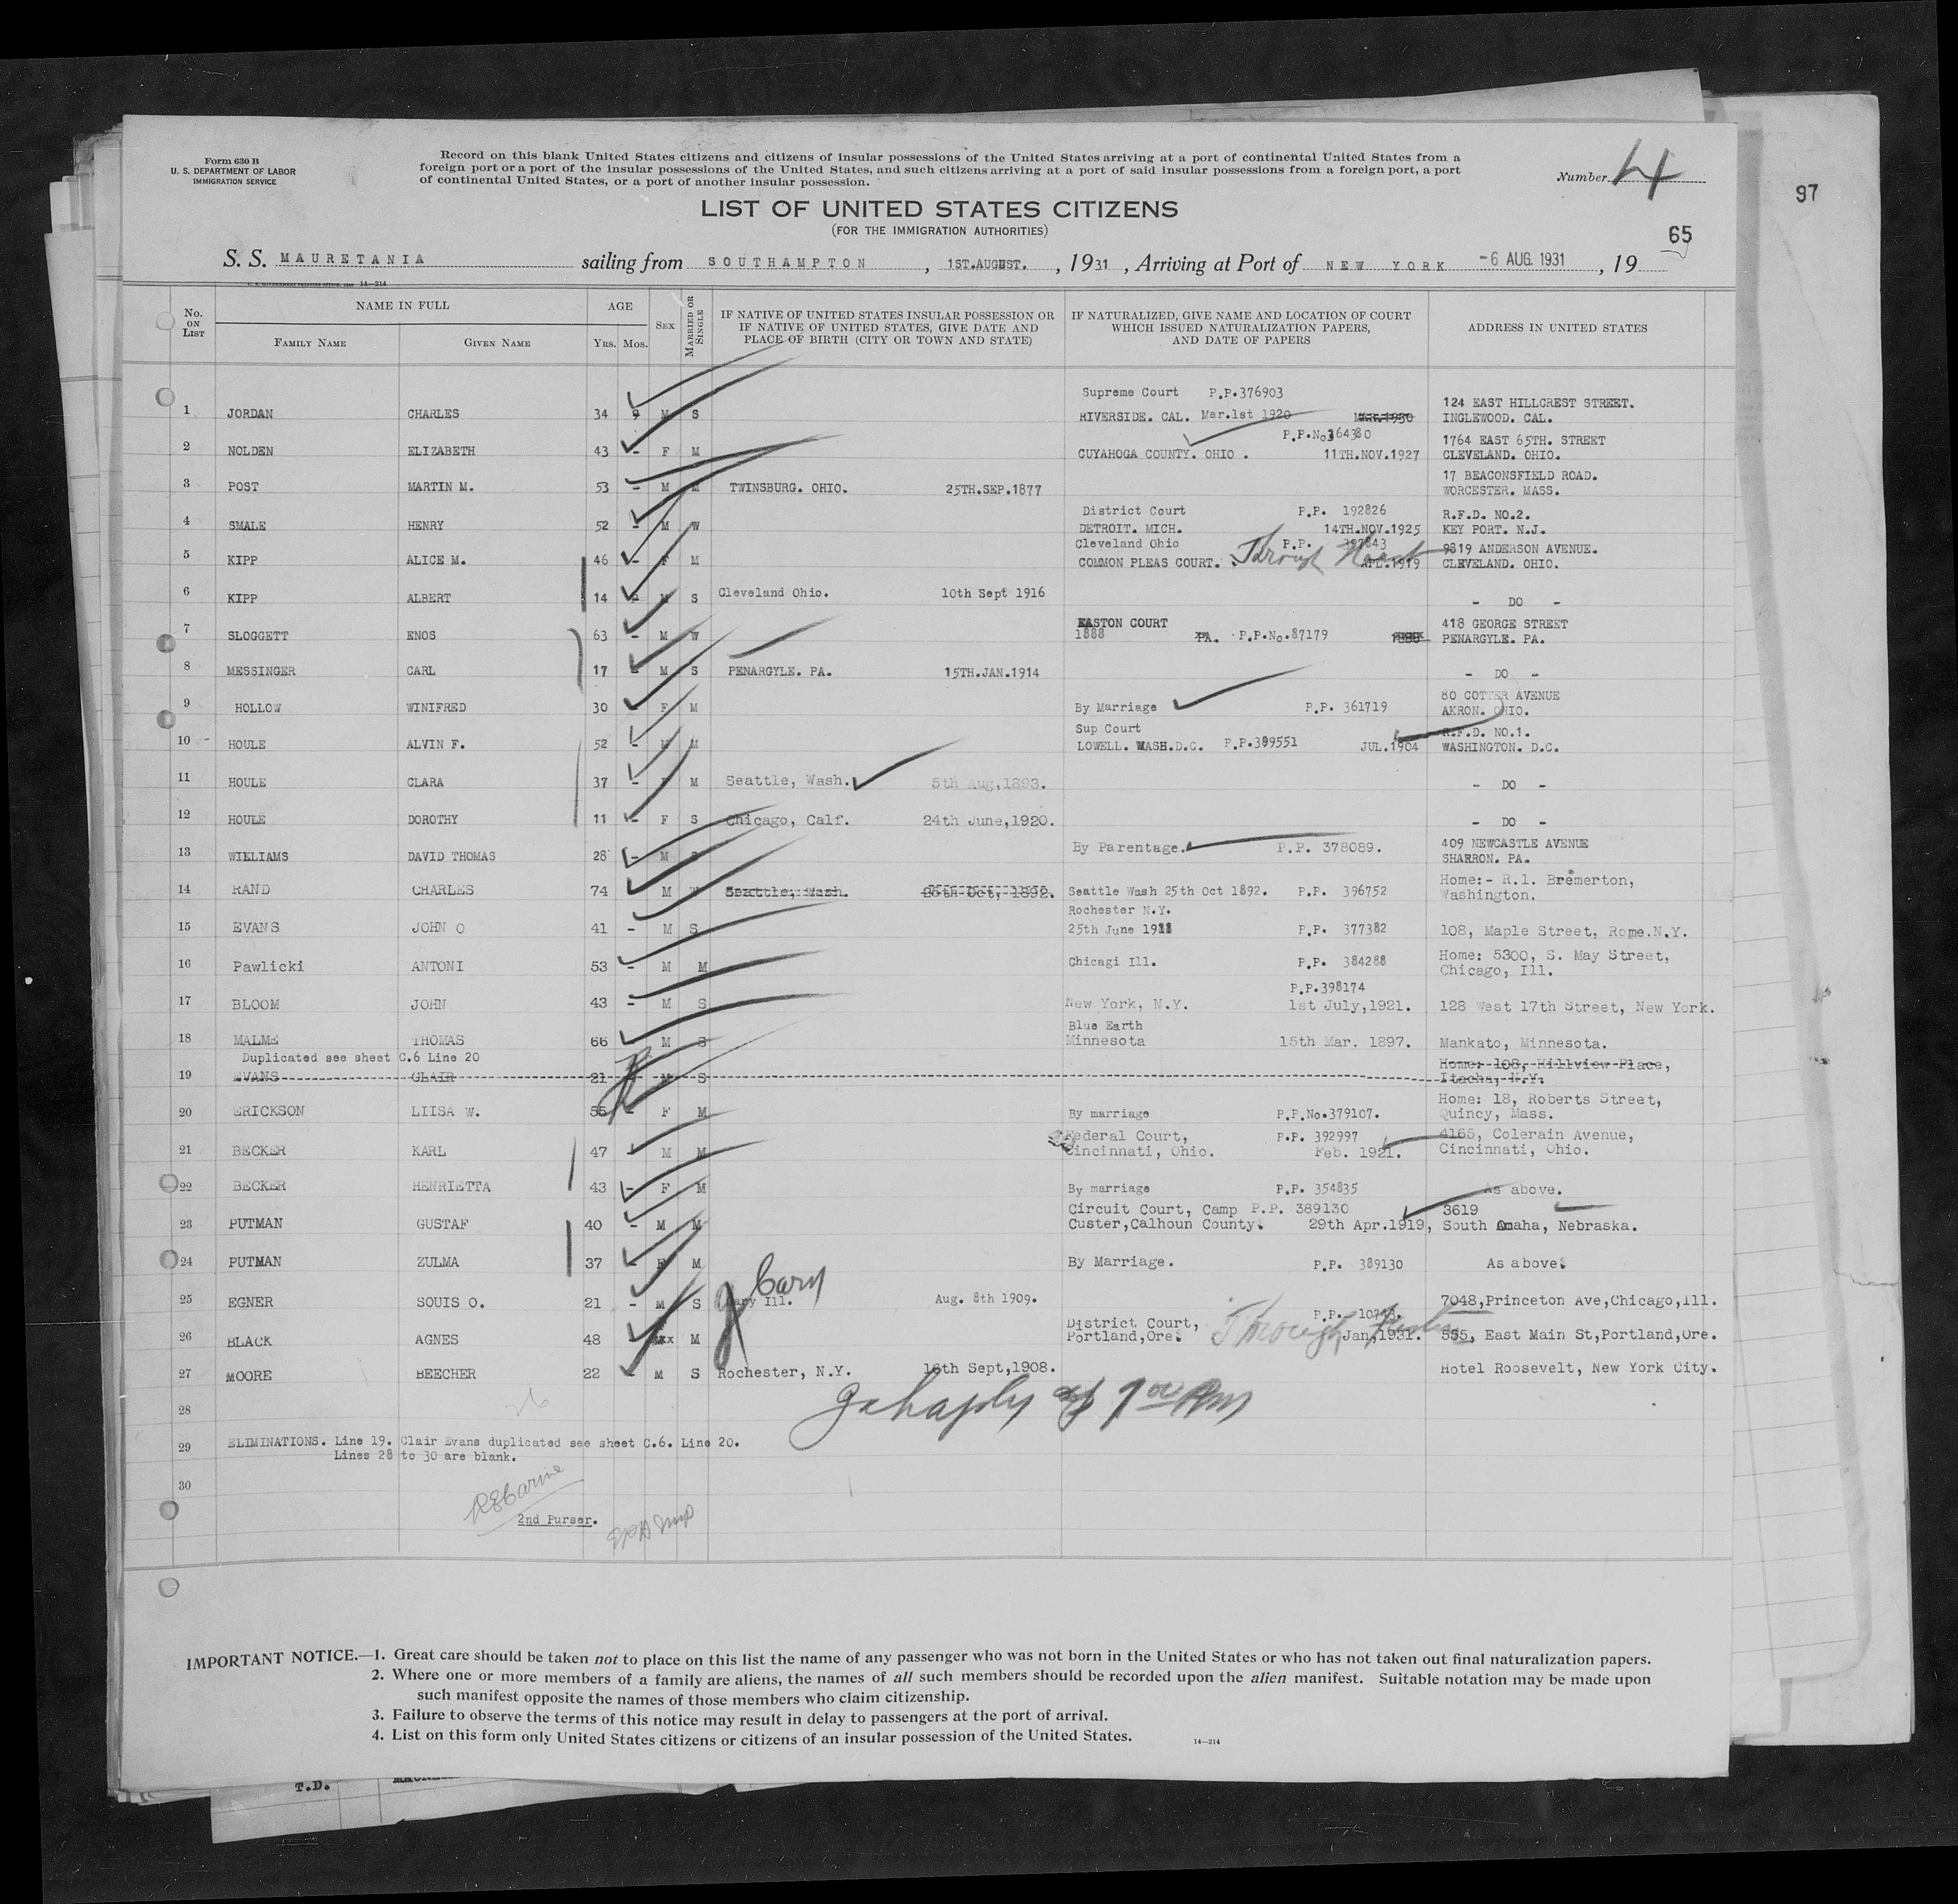 Form 630 B
U. S. DEPARTMENT OF LABOR
IMMIGRATION SERVICE
Record on this blank United States citizens and citizens of insular possessions of the United States arriving at a port of continental United States from a
foreign port or a port of the insular possessions of the United States, and such citizens arriving at a port of said insular possessions from a foreign port, a port
of continental United States, or a port of another insular possession.
Number 4
97
LIST OF UNITED STATES CITIZENS
(FOR THE IMMIGRATION AUTHORITIES)
65
S. S. MAURETANIA sailing from SOUTHAMPTON , 1ST.AUGUST. , 1931 , Arriving at Port of NEW YORK -6 AUG. 1931 , 19
14—214
No. ON LIST NAME IN FULL AGE SEX MARRIED OR SINGLE IF NATIVE OF UNITED STATES INSULAR POSSESSION OR IF NATIVE OF UNITED STATES, GIVE DATE AND PLACE OF BIRTH (CITY OR TOWN AND STATE) IF NATURALIZED, GIVE NAME AND LOCATION OF COURT WHICH ISSUED NATURALIZATION PAPERS, AND DATE OF PAPERS ADDRESS IN UNITED STATES
FAMILY NAME GIVEN NAME YRS. MOS.
Supreme Court P.P.376903 124 EAST HILLCREST STREET.
1 JORDAN CHARLES 34 M S RIVERSIDE. CAL. Mar.1st 1920 MAR.1930 INGLEWOOD. CAL.
P.P.No364380 1764 EAST 65TH. STREET
2 NOLDEN ELIZABETH 43 - F M CUYAHOGA COUNTY. OHIO . 11TH.NOV.1927 CLEVELAND. OHIO.
17 BEACONSFIELD ROAD.
3 POST MARTIN M. 53 - M M TWINSBURG. OHIO. 25TH.SEP.1877 WORCESTER. MASS.
District Court P.P. 192826 R.F.D. NO.2.
4 SMALE HENRY 52 - M W DETROIT. MICH. 14TH.NOV.1925 KEY PORT. N.J.
Cleveland Ohio P.P. 397843 9819 ANDERSON AVENUE.
5 KIPP ALICE M. 46 - F M COMMON PLEAS COURT. Through APL.1919 CLEVELAND. OHIO.
6 KIPP ALBERT 14 M S Cleveland Ohio. 10th Sept 1916 - DO -
EASTON COURT 418 GEORGE STREET
7 SLOGGETT ENOS 63 - M W 1888 PA. P.P.No.87179 1888 PENARGYLE. PA.
8 MESSINGER CARL 17 - M S PENARGYLE. PA. 15TH.JAN.1914 - DO -
80 COTTER AVENUE
9 HOLLOW WINIFRED 30 - F M By Marriage P.P. 361719 AKRON. OHIO.
Sup Court R.F.D. NO.1.
10 HOULE ALVIN F. 52 - M M LOWELL. WASH.D.C. P.P.399551 JUL.1904 WASHINGTON. D.C.
11 HOULE CLARA 37 - F M Seattle, Wash. 5th Aug,1893. - DO -
12 HOULE DOROTHY 11 - F S Chicago, Calf. 24th June,1920. - DO -
409 NEWCASTLE AVENUE
13 WILLIAMS DAVID THOMAS 28 - M S By Parentage. P.P. 378089. SHARRON. PA.
Home:- R.1. Bremerton,
14 RAND CHARLES 74 M W Seattle, Wash. 25th Oct, 1892. Seattle Wash 25th Oct 1892. P.P. 396752 Washington.
Rochester N.Y.
15 EVANS JOHN O 41 - M S 25th June 1911 P.P. 377382 108, Maple Street, Rome.N.Y.
Home: 5300, S. May Street,
16 Pawlicki ANTONI 53 - M M Chicagi Ill. P.P. 384288 Chicago, Ill.
P.P.398174
17 BLOOM JOHN 43 - M S New York, N.Y. 1st July,1921. 128 West 17th Street, New York.
Blue Earth
18 MALME THOMAS 66 M S Minnesota 15th Mar. 1897. Mankato, Minnesota.
Duplicated see sheet C.6 Line 20 Home: 108, Hillview Place,
19 EVANS CLAIR 21 - M S Itacha, N.Y.
Home: 18, Roberts Street,
20 ERICKSON LIISA W. 55 - F M By marriage P.P.No.379107. Quincy, Mass.
Federal Court, P.P. 392997 4165, Colerain Avenue,
21 BECKER KARL 47 M M Cincinnati, Ohio. Feb. 1921. Cincinnati, Ohio.
22 BECKER HENRIETTA 43 - F M By marriage P.P. 354835 As above.
Circuit Court, Camp P.P. 389130 3619
23 PUTMAN GUSTAF 40 - M M Custer,Calhoun County. 29th Apr.1919, South Omaha, Nebraska.
24 PUTMAN ZULMA 37 - F M By Marriage. P.P. 389130 As above.
Cary
25 EGNER SOUIS O. 21 - M S Gary Ill. Aug. 8th 1909. 7048,Princeton Ave,Chicago,Ill.
District Court, P.P.
26 BLACK AGNES 48 M Portland,Ore. Through Jan,1931. 555, East Main St,Portland,Ore.
27 MOORE BEECHER 22 - M S Rochester, N.Y. 16th Sept,1908. Hotel Roosevelt, New York City.
28 26
29 ELIMINATIONS. Line 19. Clair Evans duplicated see sheet C.6. Line 20.
Lines 28 to 30 are blank.
30
2nd Purser.
IMPORTANT NOTICE.—1. Great care should be taken not to place on this list the name of any passenger who was not born in the United States or who has not taken out final naturalization papers.
2. Where one or more members of a family are aliens, the names of all such members should be recorded upon the alien manifest. Suitable notation may be made upon
such manifest opposite the names of those members who claim citizenship.
3. Failure to observe the terms of this notice may result in delay to passengers at the port of arrival.
4. List on this form only United States citizens or citizens of an insular possession of the United States.
14—214
T.D.